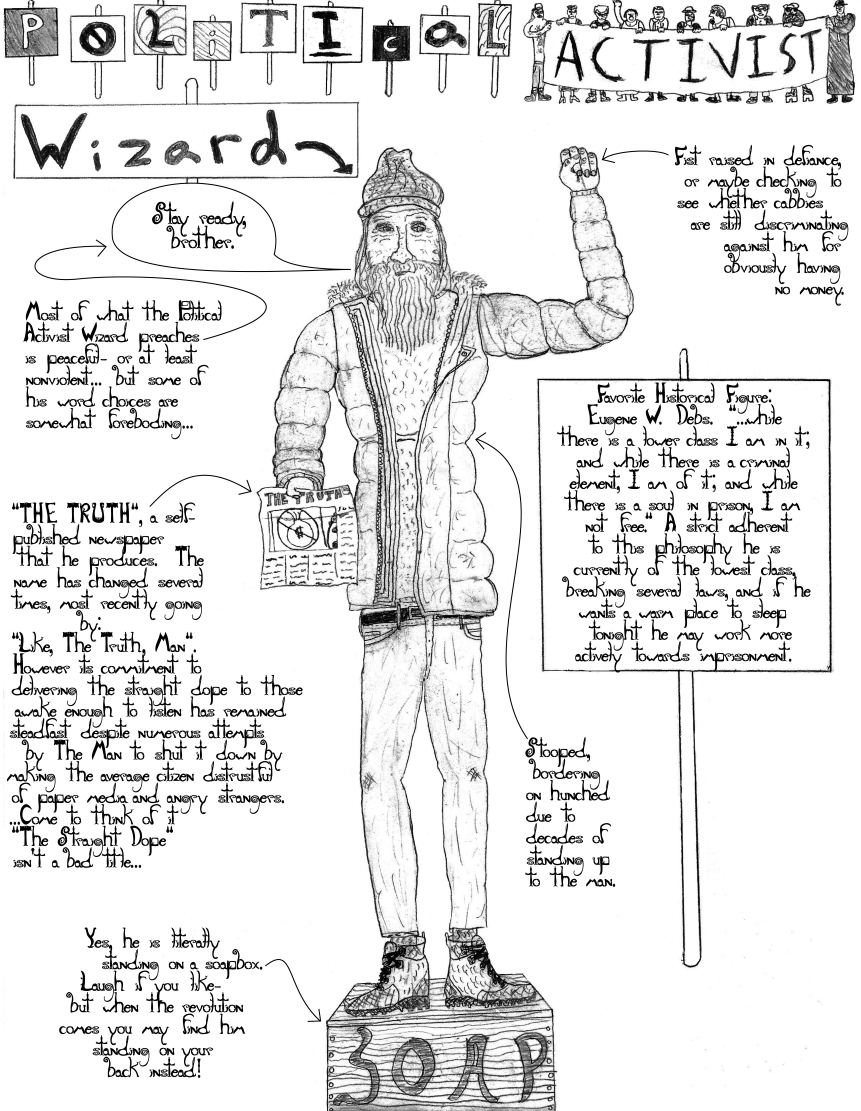 POLiTICAL
ACTIVIST
Wizard
Stay ready,
brother.
Fist raised in defiance,
or maybe checking to
see whether cabbies
are still discriminating
against him for
obviously having
no money.
Most of what the Political
Activist Wizard preaches
is peaceful- or at least
nonviolent... but some of
his word choices are
somewhat foreboding...
Favorite Historical Figure:
Eugene W. Debs. "...while
there is a lower class I am in it,
and while there is a criminal
element, I am of it, and while
there is a soul in prison, I am
not free." A strict adherent
to this philosophy he is
currently of the lowest class,
breaking several laws, and if he
wants a warm place to sleep
tonight he may work more
actively towards imprisonment.
THE TRUTH
"THE TRUTH", a self-
published newspaper
that he produces. The
name has changed several
times, most recently going
by:
"Like, The Truth, Man".
However its commitment to
delivering the straight dope to those
awake enough to listen has remained
steadfast despite numerous attempts
by The Man to shut it down by
making the average citizen distrustful
of paper media and angry strangers.
...Come to think of it
"The Straight Dope"
isn't a bad title...
Stooped,
bordering
on hunched
due to
decades of
standing up
to the man.
Yes, he is literally
standing on a soapbox.
Laugh if you like-
but when the revolution
comes you may find him
standing on your
back instead!
SOAP